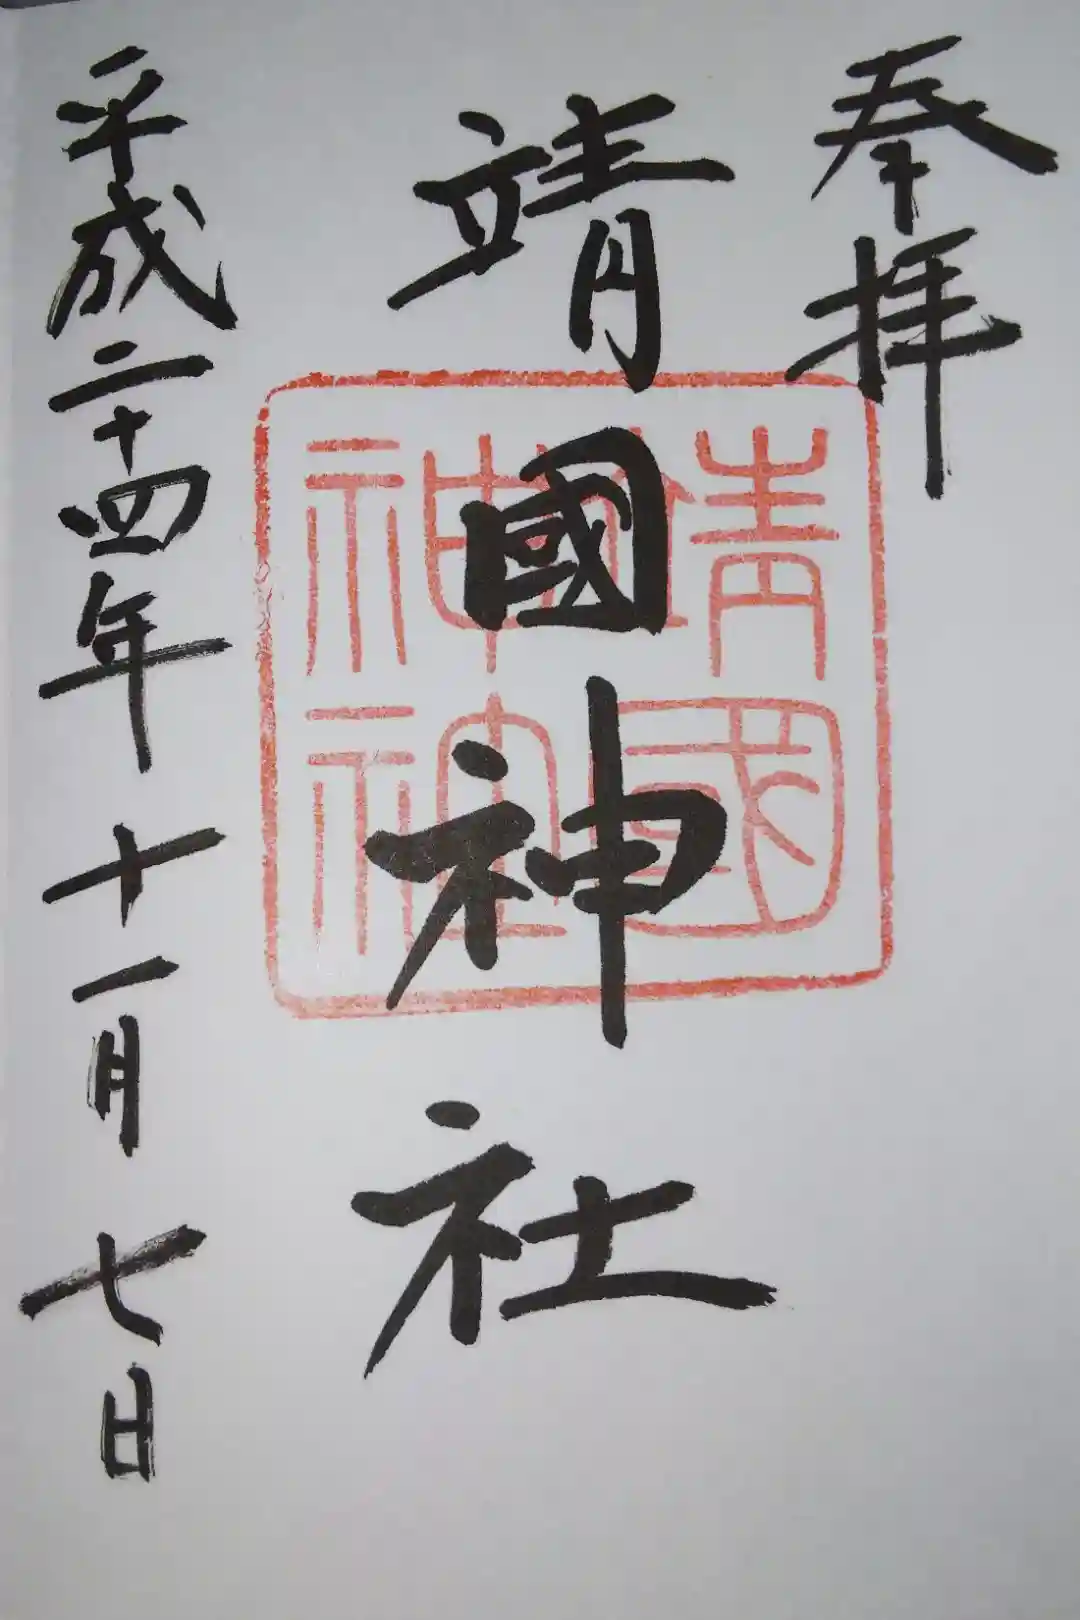 奉拝
靖國神社
靖國
神社
平成二十四年十一月七日